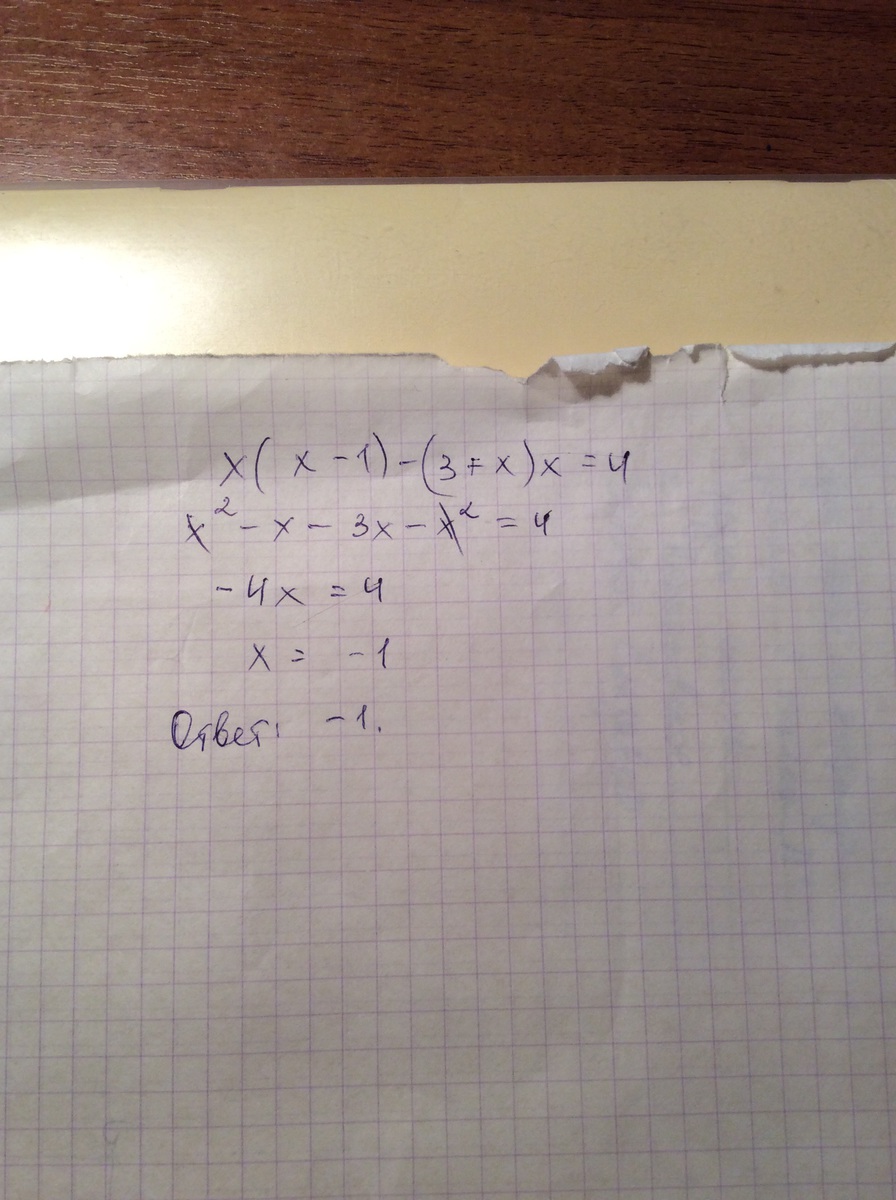 x(x-1)-(3+x)x=4
x²-x-3x-x²=4
-4x=4
x=-1
Ответ: -1.